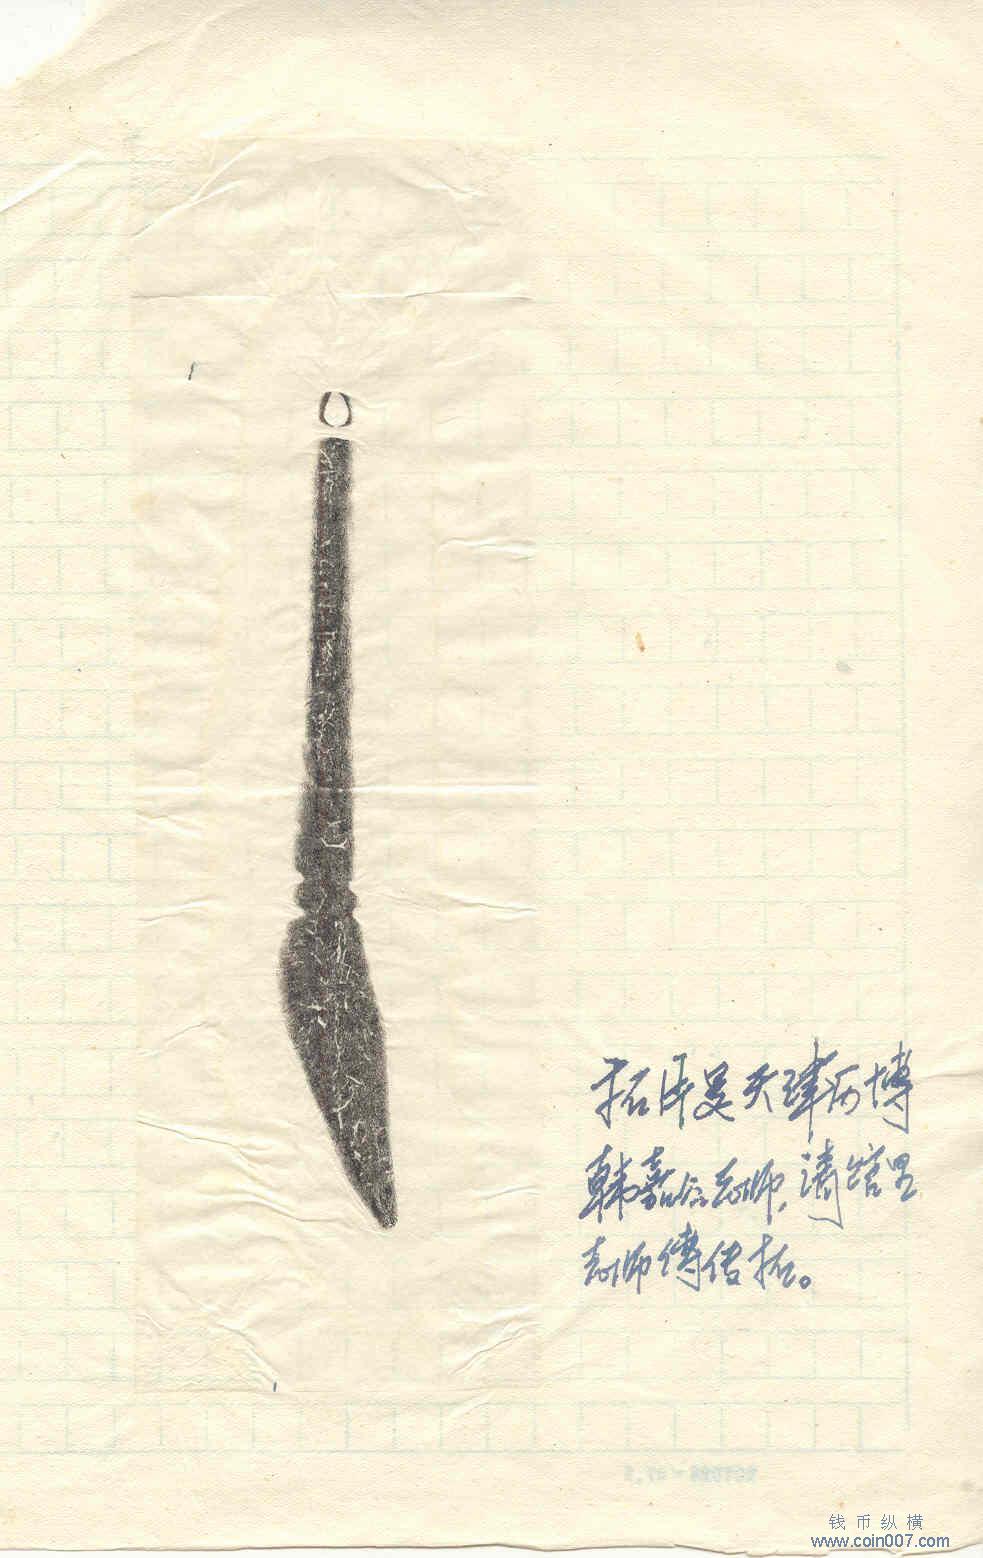 拓片是天津历博
韩嘉谷老师，请馆里
老师傅传拓。
钱币纵横
www.coin007.com